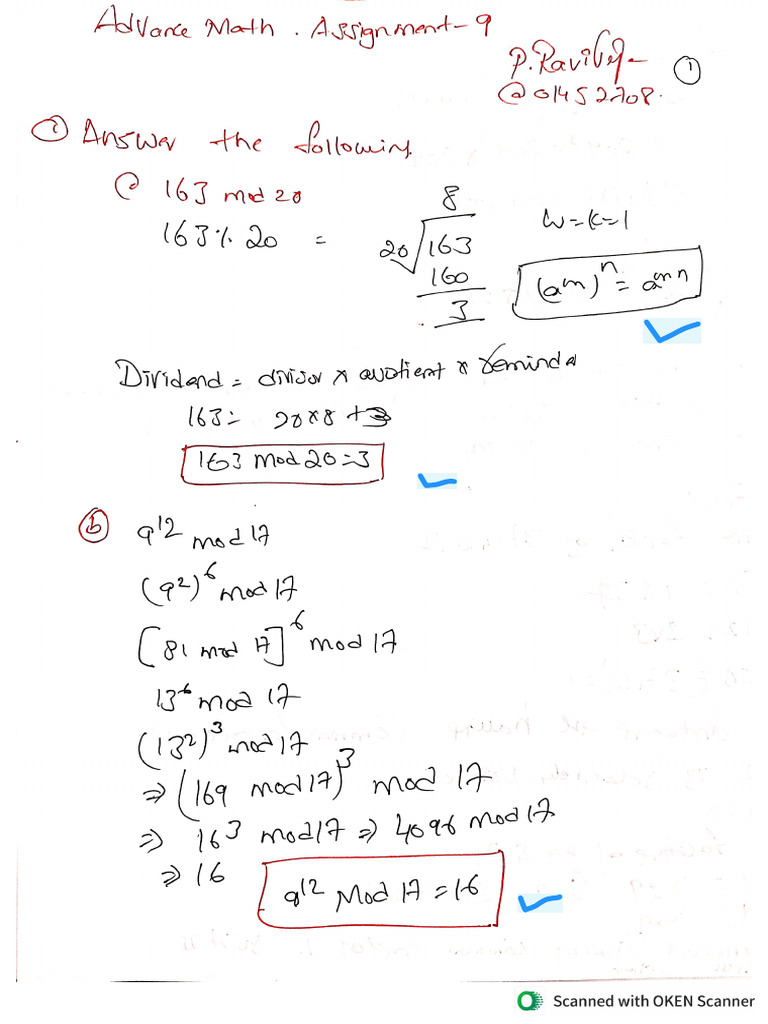 Advance Math. Assignment-9
P.Ravi
@01452708.
①
① Answer the following
@ 163 mod 20
163% 20 =
8
20 163
160
3
W=K=1
(a^m)^n = a^mn
Dividend = divisor × quotient × reminder
163= 20*8 +3
163 mod 20=3
ⓑ 9^12 mod 17
(9^2)^6 mod 17
[81 mod 17]^6 mod 17
13^6 mod 17
(13^2)^3 mod 17
⇒ (169 mod 17)^3 mod 17
⇒ 16^3 mod 17 ⇒ 4096 mod 17
⇒ 16
9^12 Mod 17 = 16
Scanned with OKEN Scanner